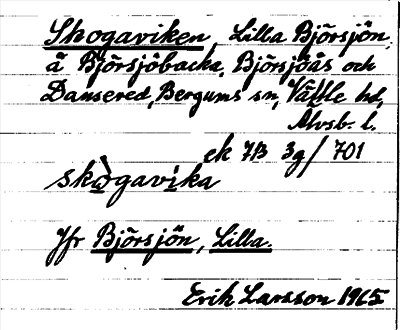 Skogaviken, Lilla Björsjön,
å Björsjöbacka, Björsjöås och
Dansered, Bergums sn, Vättle hd,
Älvsb. l.
ek 7B 3g/701
skògavika
Jfr Björsjön, Lilla.
Erik Larsson 1965